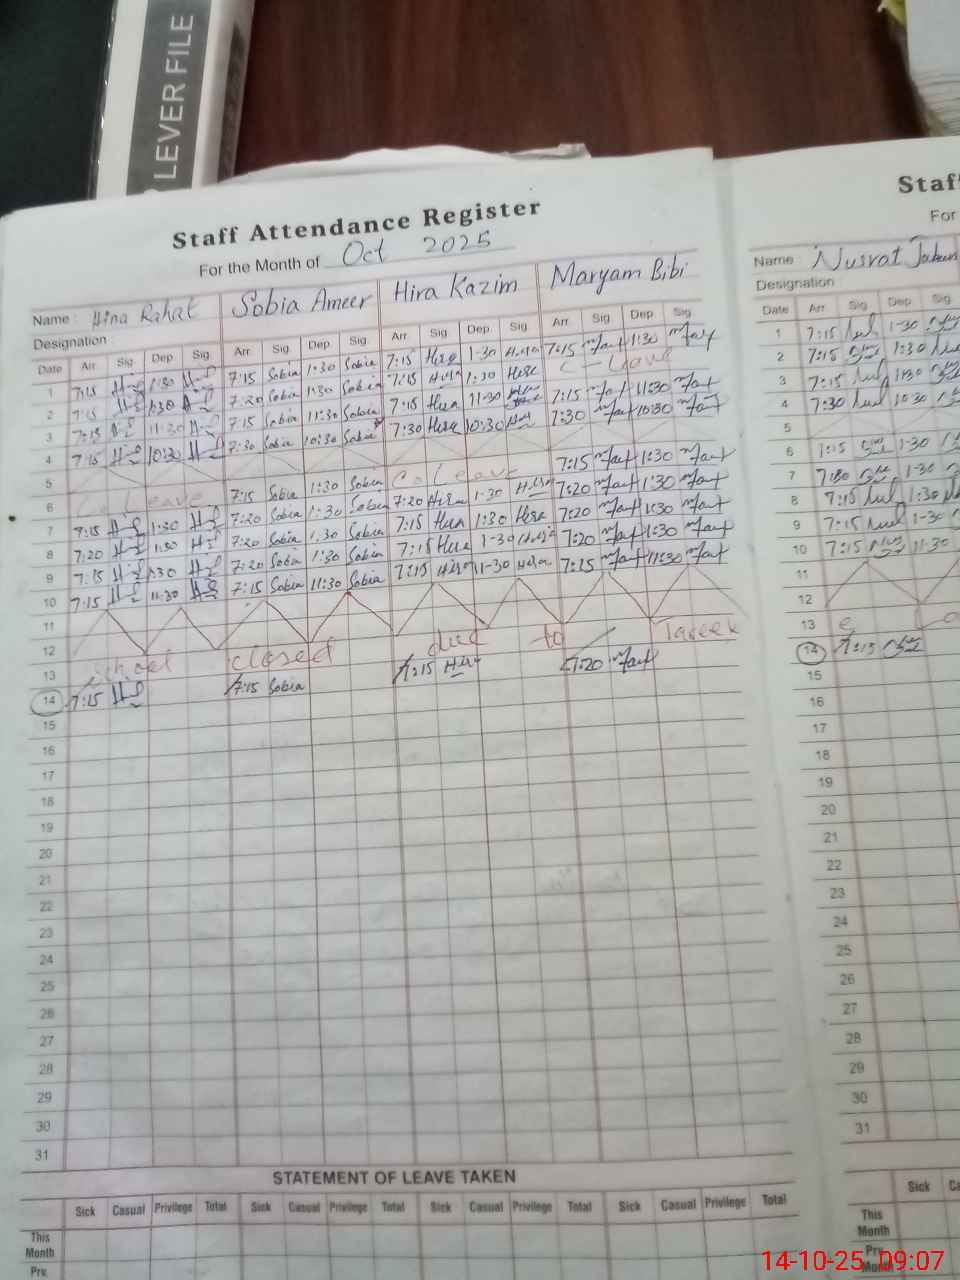 LEVER FILE
Staff Attendance Register
For the Month of Oct 2025
Name : Hina Rahat Sobia Ameer Hira Kazim Maryam Bibi
Designation :
Date Arr. Sig. Dep. Sig. Arr. Sig. Dep. Sig. Arr. Sig. Dep. Sig. Arr. Sig. Dep. Sig.
1 7:15 1:30 7:15 Sobia 1:30 Sobia 7:15 Hira 1-30 Hira 7:15 1:30
2 7:15 1:30 7:20 Sobia 1:30 Sobia 7:15 Hira 1:30 Hira C-Leave
3 7:15 11:30 7:15 Sobia 11:30 Sobia 7:15 Hira 11-30 7:15 11:30
4 7:15 10:30 7:30 Sobia 10:30 Sobia 7:30 Hira 10:30 7:30 10:30
5
6 Leave 7:15 Sobia 1:30 Sobia Leave 7:15 1:30
7 7:15 1:30 7:20 Sobia 1:30 Sobia 7:20 Hira 1-30 Hira 7:20 1:30
8 7:20 1:30 7:20 Sobia 1:30 Sobia 7:15 Hira 1:30 Hira 7:20 1:30
9 7:15 1:30 7:20 Sobia 1:30 Sobia 7:15 Hira 1-30 Hira 7:20 1:30
10 7:15 11:30 7:15 Sobia 11:30 Sobia 7:15 Hira 11-30 Hira 7:25 11:30
11
12
13 school closed due to
14 7:15 7:15 Sobia 7:15 Hira 7:20
15
16
17
18
19
20
21
22
23
24
25
26
27
28
29
30
31
STATEMENT OF LEAVE TAKEN
Sick Casual Privilege Total Sick Casual Privilege Total Sick Casual Privilege Total Sick Casual Privilege Total
This Month
Prv.
Staf
For
Name : Nusrat
Designation
Date Arr. Sig. Dep. Sig.
1 7:15 1-30
2 7:15 1:30
3 7:15 11:30
4 7:30 10:30
5
6 7:15 1-30
7 7:20 1-30
8 7:15 1:30
9 7:15 1-30
10 7:15 11-30
11
12
13
14 7:15
15
16
17
18
19
20
21
22
23
24
25
26
27
28
29
30
31
Sick
This Month
Prv. Month
14-10-25 09:07